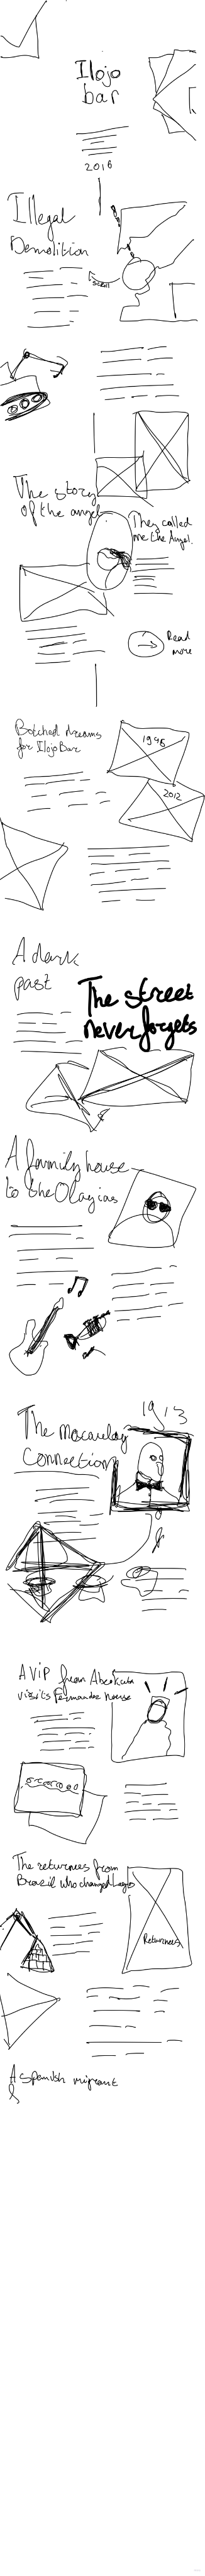 Ilojo
bar
2016
Illegal
Demolition
scroll
The story
of the angel
They called
me the Angel.
Read
more
Botched dreams
for Ilojo Bar
1946
2012
A dark
past
The street
never forgets
A family house
to the Olayias
1913
The Macaulay
Connection
A VIP from Abeokuta
visits Fernandez house
The returnees from
Brazil who changed Lagos
Returnees
A spanish migrant